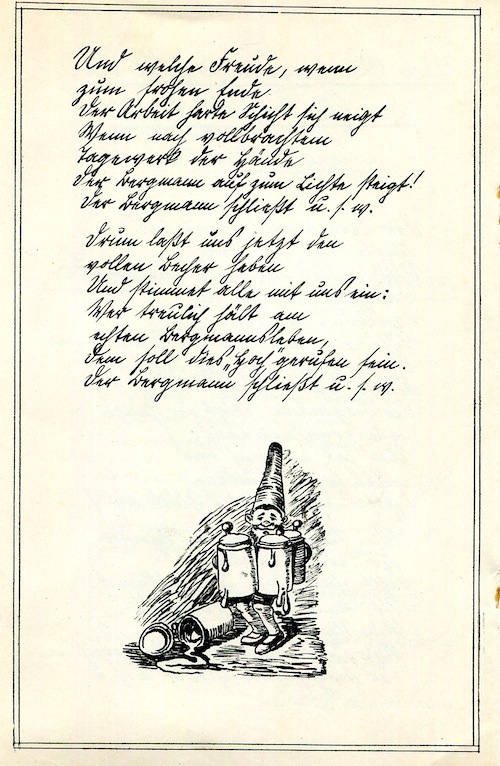 Und welche Freude, wenn
zum frohen Ende
Der Arbeit harte Schicht sich neigt
Wenn nach vollbrachtem
Tagewerk der Hände
Der Bergmann auf zum Lichte steigt!
Der Bergmann schließt u. s. w.
Drum laßt uns jetzt den
vollen Becher heben
Und stimmet alle mit uns ein:
Wer treulich hält am
echten Bergmannsleben,
Dem soll dies „Hoch“ gerufen sein.
Der Bergmann schließt u. s. w.